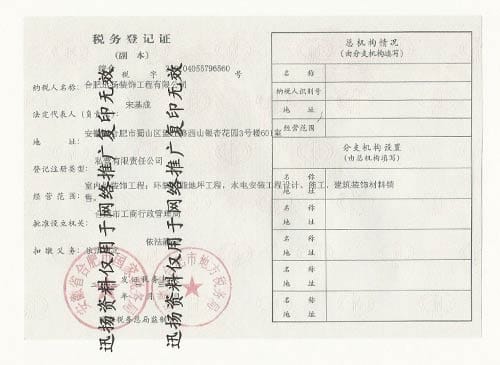 税务登记证
(副 本)
税 字 04055796560 号
纳税人名称: 合肥 装饰工程有限公司
法定代表人(负责
宋基成
地 址: 安徽 合肥市蜀山区 西山银杏花园3号楼601室
登记注册类型: 私营有限责任公司
经营范围: 室内 装饰工程; 地坪工程, 水电安装工程设计、施工, 建筑装饰材料销售。
批准设立机关: 市工商行政管理局
扣缴义务: 依法
发证税务机
年 月
税务总局监制
安徽省合肥 国家税务局
肥市地方税务局
迅扬资料仅用于网络推广复印无效
迅扬资料仅用于网络推广复印无效
总机构情况
(由分支机构填写)
名 称
纳税人识别号
地 址
经营范围
分支机构设置
(由总机构填写)
名 称
地 址
名 称
地 址
名 称
地 址
名 称
地 址
名 称
地 址